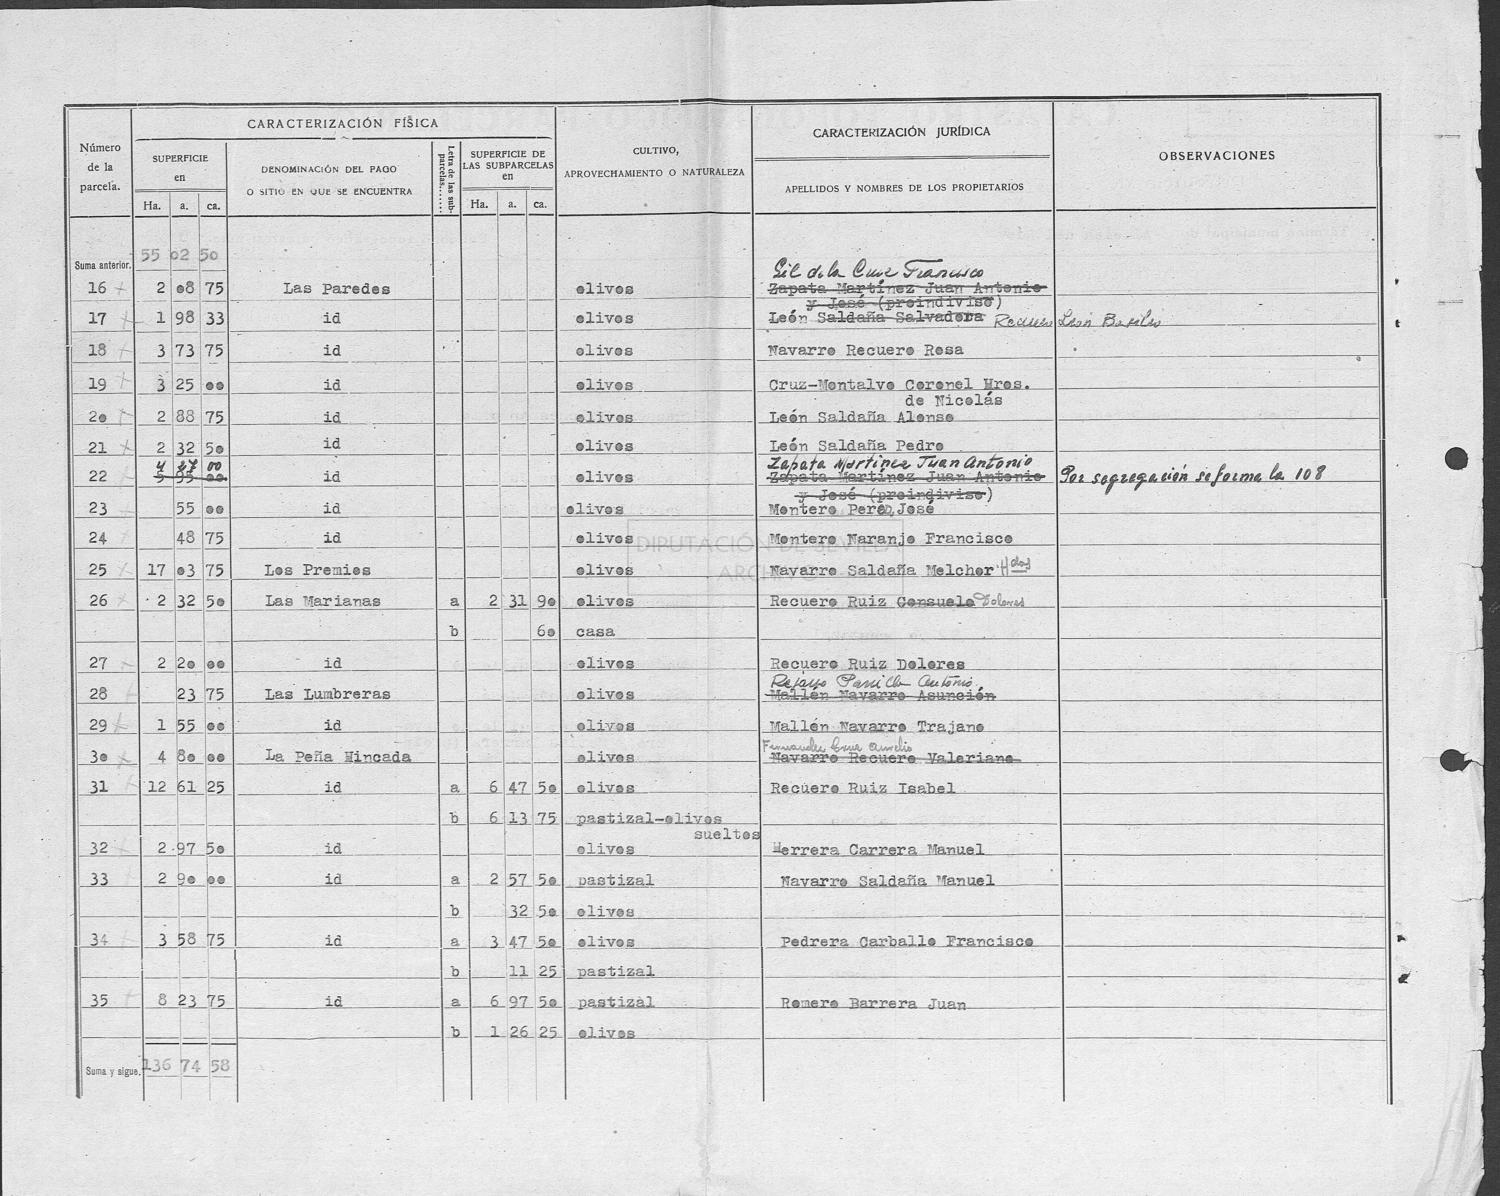 CARACTERIZACIÓN FÍSICA
CARACTERIZACIÓN JURÍDICA
OBSERVACIONES
Número de la parcela.
SUPERFICIE en
DENOMINACIÓN DEL PAGO O SITIO EN QUE SE ENCUENTRA
Letra de las subparcelas.
SUPERFICIE DE LAS SUBPARCELAS en
CULTIVO, APROVECHAMIENTO O NATURALEZA
APELLIDOS Y NOMBRES DE LOS PROPIETARIOS
Ha. a. ca. Ha. a. ca.
Suma anterior. 55 02 50
Gil de la Cruz Francisco
16 2 08 75 Las Paredes olivos Zapata Martínez Juan Antonio
y José (proindiviso)
17 1 98 33 id olivos León Saldaña Salvadora Recuero León Basilio
18 3 73 75 id olivos Navarro Recuero Rosa
19 3 25 00 id olivos Cruz-Montalvo Coronel Hros.
de Nicolás
20 2 88 75 id olivos León Saldaña Alonso
21 2 32 50 id olivos León Saldaña Pedro
4 27 00 Zapata Martínez Juan Antonio
22 5 95 00 id olivos Zapata Martínez Juan Antonio Por segregación se forma la 108
y José (proindiviso)
23 55 00 id olivos Montero Perea, José
24 48 75 id olivos Montero Naranjo Francisco
DIPUTACIÓN DE SEVILLA
ARCHIVO
25 17 03 75 Los Premios olivos Navarro Saldaña Melchor Hdos
26 2 32 50 Las Marianas a 2 31 90 olivos Recuero Ruiz Consuelo Dolores
b 60 casa
27 2 20 00 id olivos Recuero Ruiz Dolores
Antonio
28 23 75 Las Lumbreras olivos Mallén Navarro Asunción
29 1 55 00 id olivos Mallén Navarro Trajano
Fernandez Cruz Aurelio
30 4 80 00 La Peña Hincada olivos Navarro Recuero Valeriano
31 12 61 25 id a 6 47 50 olivos Recuero Ruiz Isabel
b 6 13 75 pastizal-olivos
sueltos
32 2 97 50 id olivos Herrera Carrera Manuel
33 2 90 00 id a 2 57 50 pastizal Navarro Saldaña Manuel
b 32 50 olivos
34 3 58 75 id a 3 47 50 olivos Pedrera Carballo Francisco
b 11 25 pastizal
35 8 23 75 id a 6 97 50 pastizal Romero Barrera Juan
b 1 26 25 olivos
Suma y sigue. 136 74 58